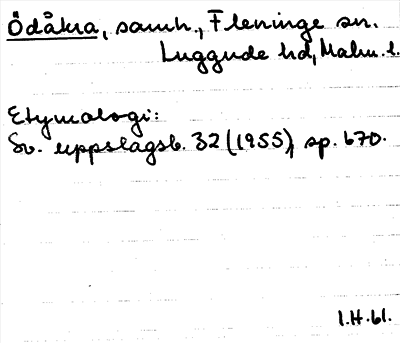 Ödåkra, samh., Fleninge sn.
Luggude hd, Malm. l.
Etymologi:
Sv. uppslagsb. 32 (1955), sp. 670.
I.H.61.